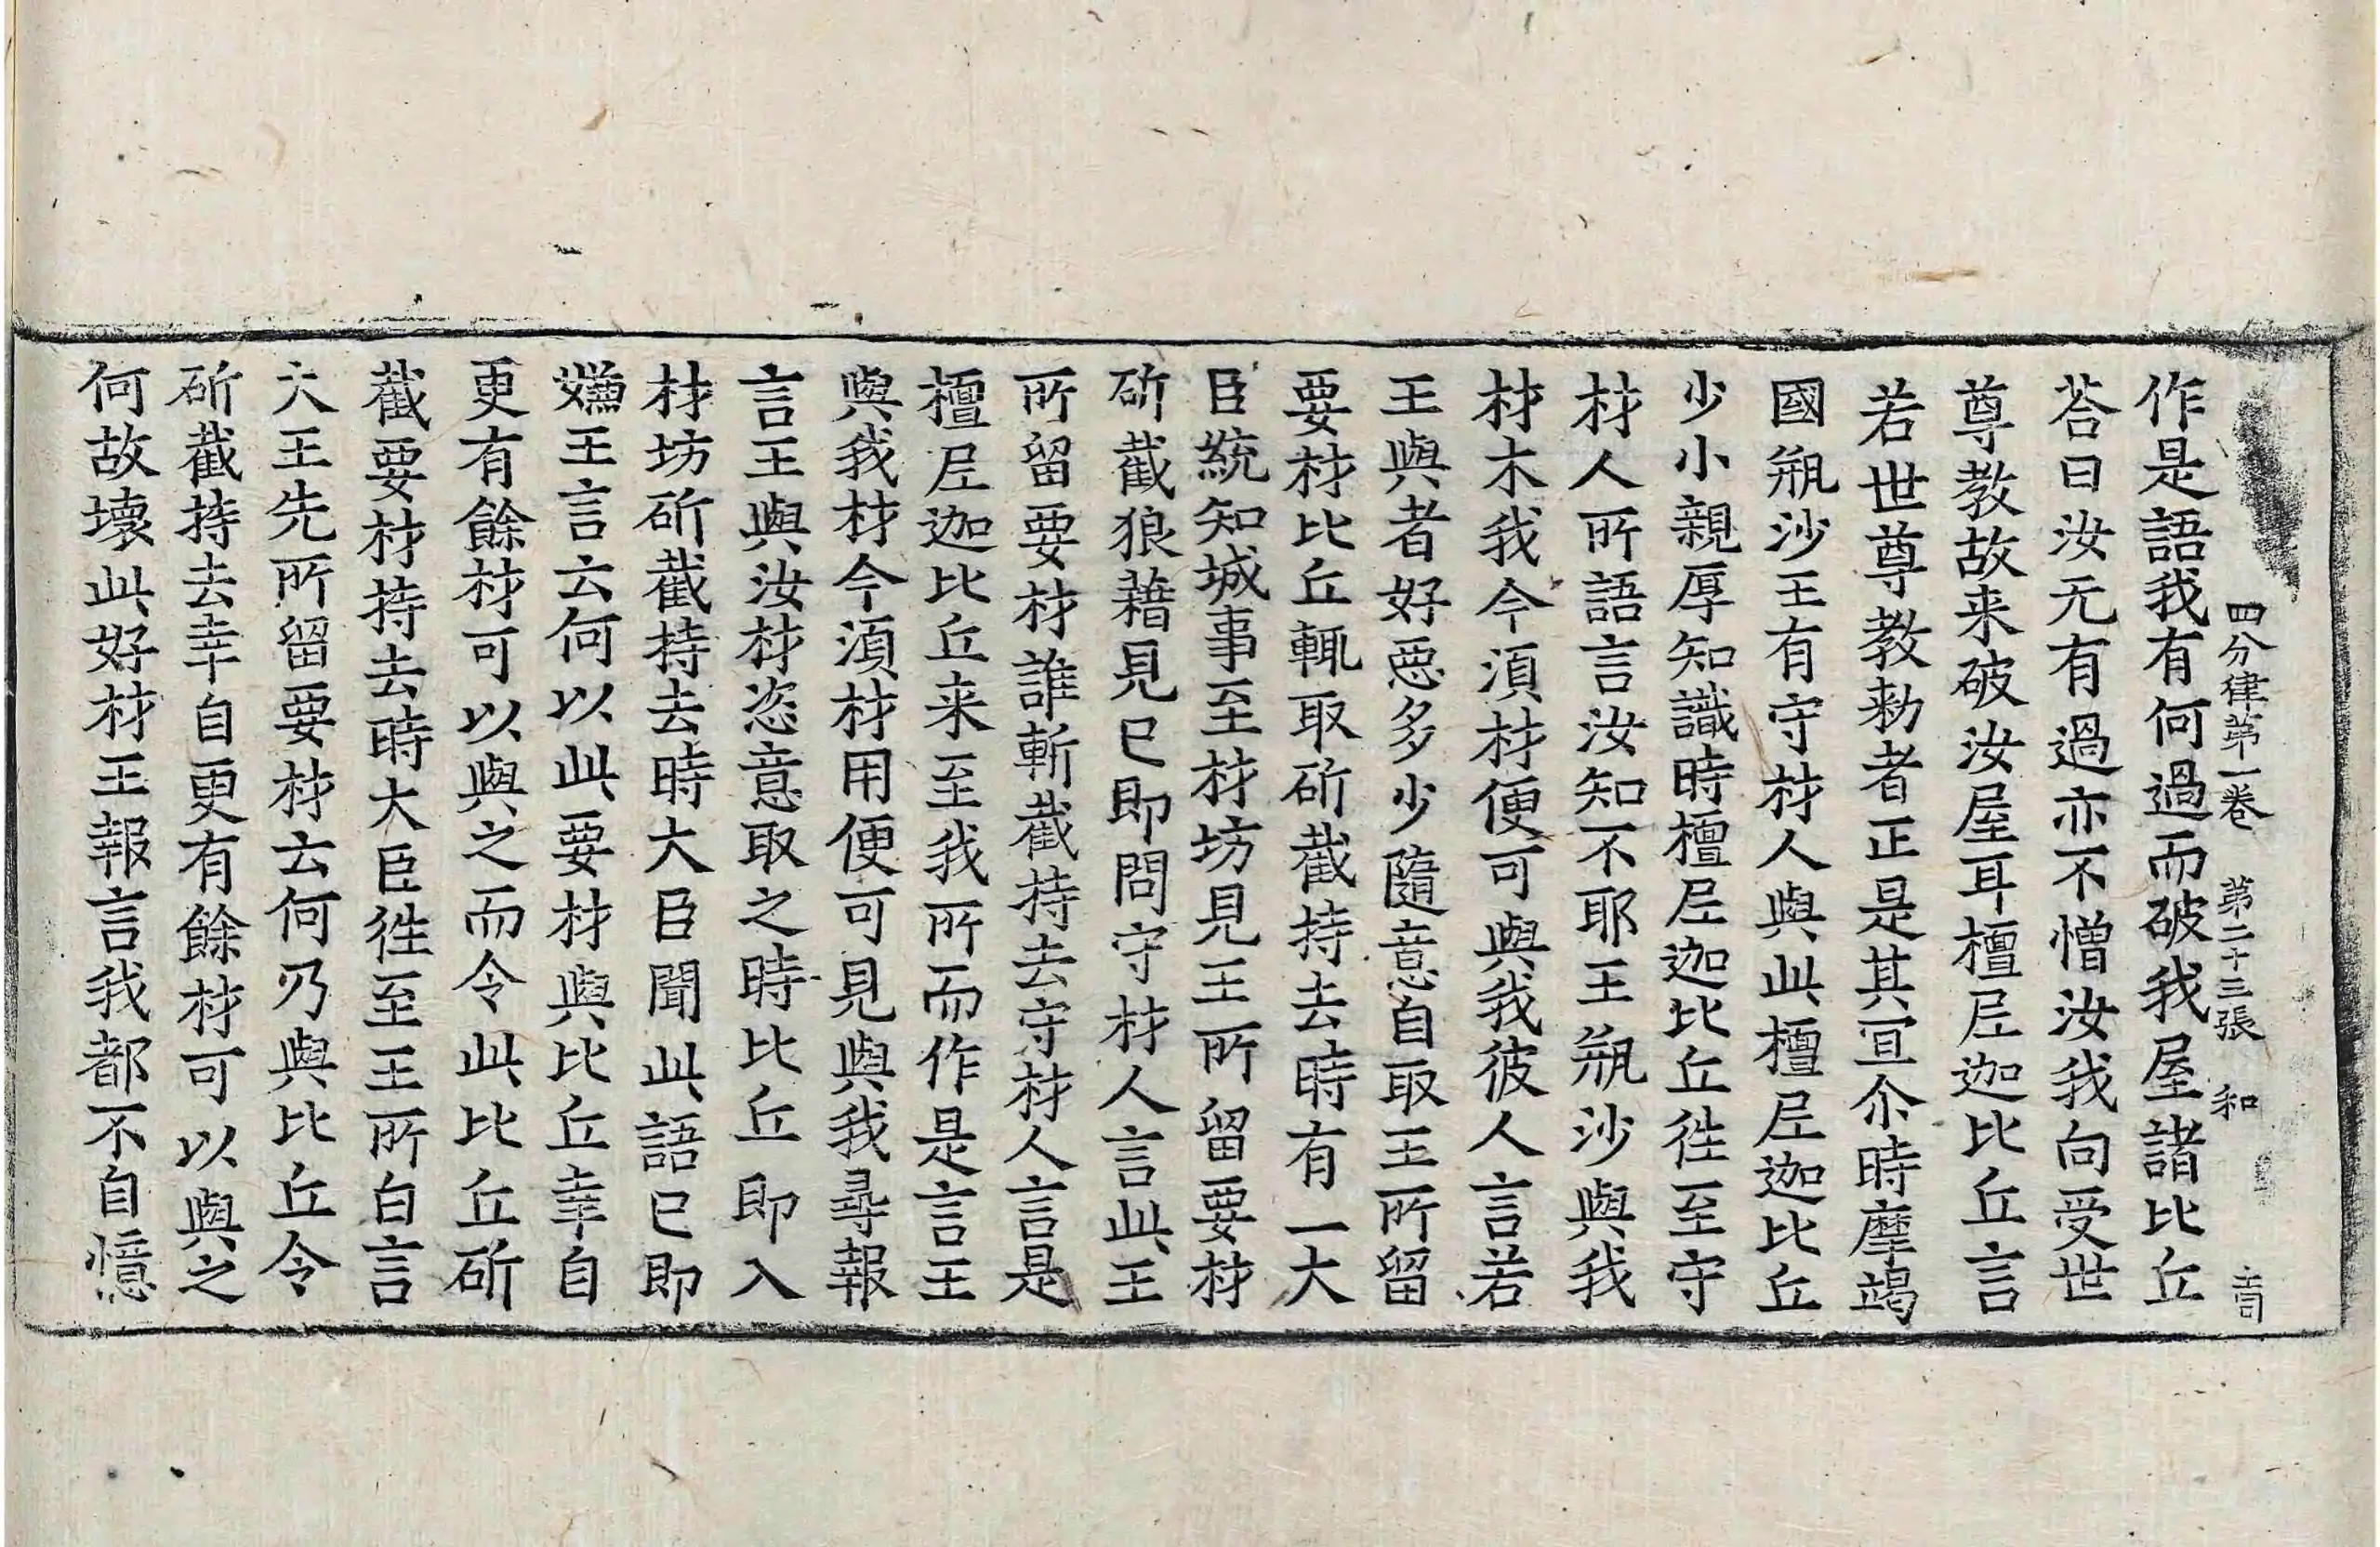 四分律第一卷 第二十三張 和
作是語我有何過而破我屋諸比丘
荅曰汝无有過亦不憎汝我向受世
尊教故来破汝屋耳檀𡰱迦比丘言
若世尊教勑者正是其冝尒時摩竭
國缾沙王有守材人與此檀𡰱迦比丘
少小親厚知識時檀𡰱迦比丘徃至守
材人所語言汝知不耶王缾沙與我
材木我今湏材便可與我彼人言若
王與者好惡多少隨意自取王所留
要材比丘輒取斫截持去時有一大
臣統知城事至材坊見王所留要材
斫截狼藉見已即問守材人言此王
所留要材誰斬截持去守材人言是
檀𡰱迦比丘来至我所而作是言王
與我材今湏材用便可見與我尋報
言王與汝材恣意取之時比丘即入
材坊斫截持去時大臣聞此語已即
嫌王言云何以此要材與比丘幸自
更有餘材可以與之而令此比丘斫
截要材持去時大臣徃至王所白言
大王先所留要材云何乃與比丘令
斫截持去幸自更有餘材可以與之
何故壞此好材王報言我都不自憶